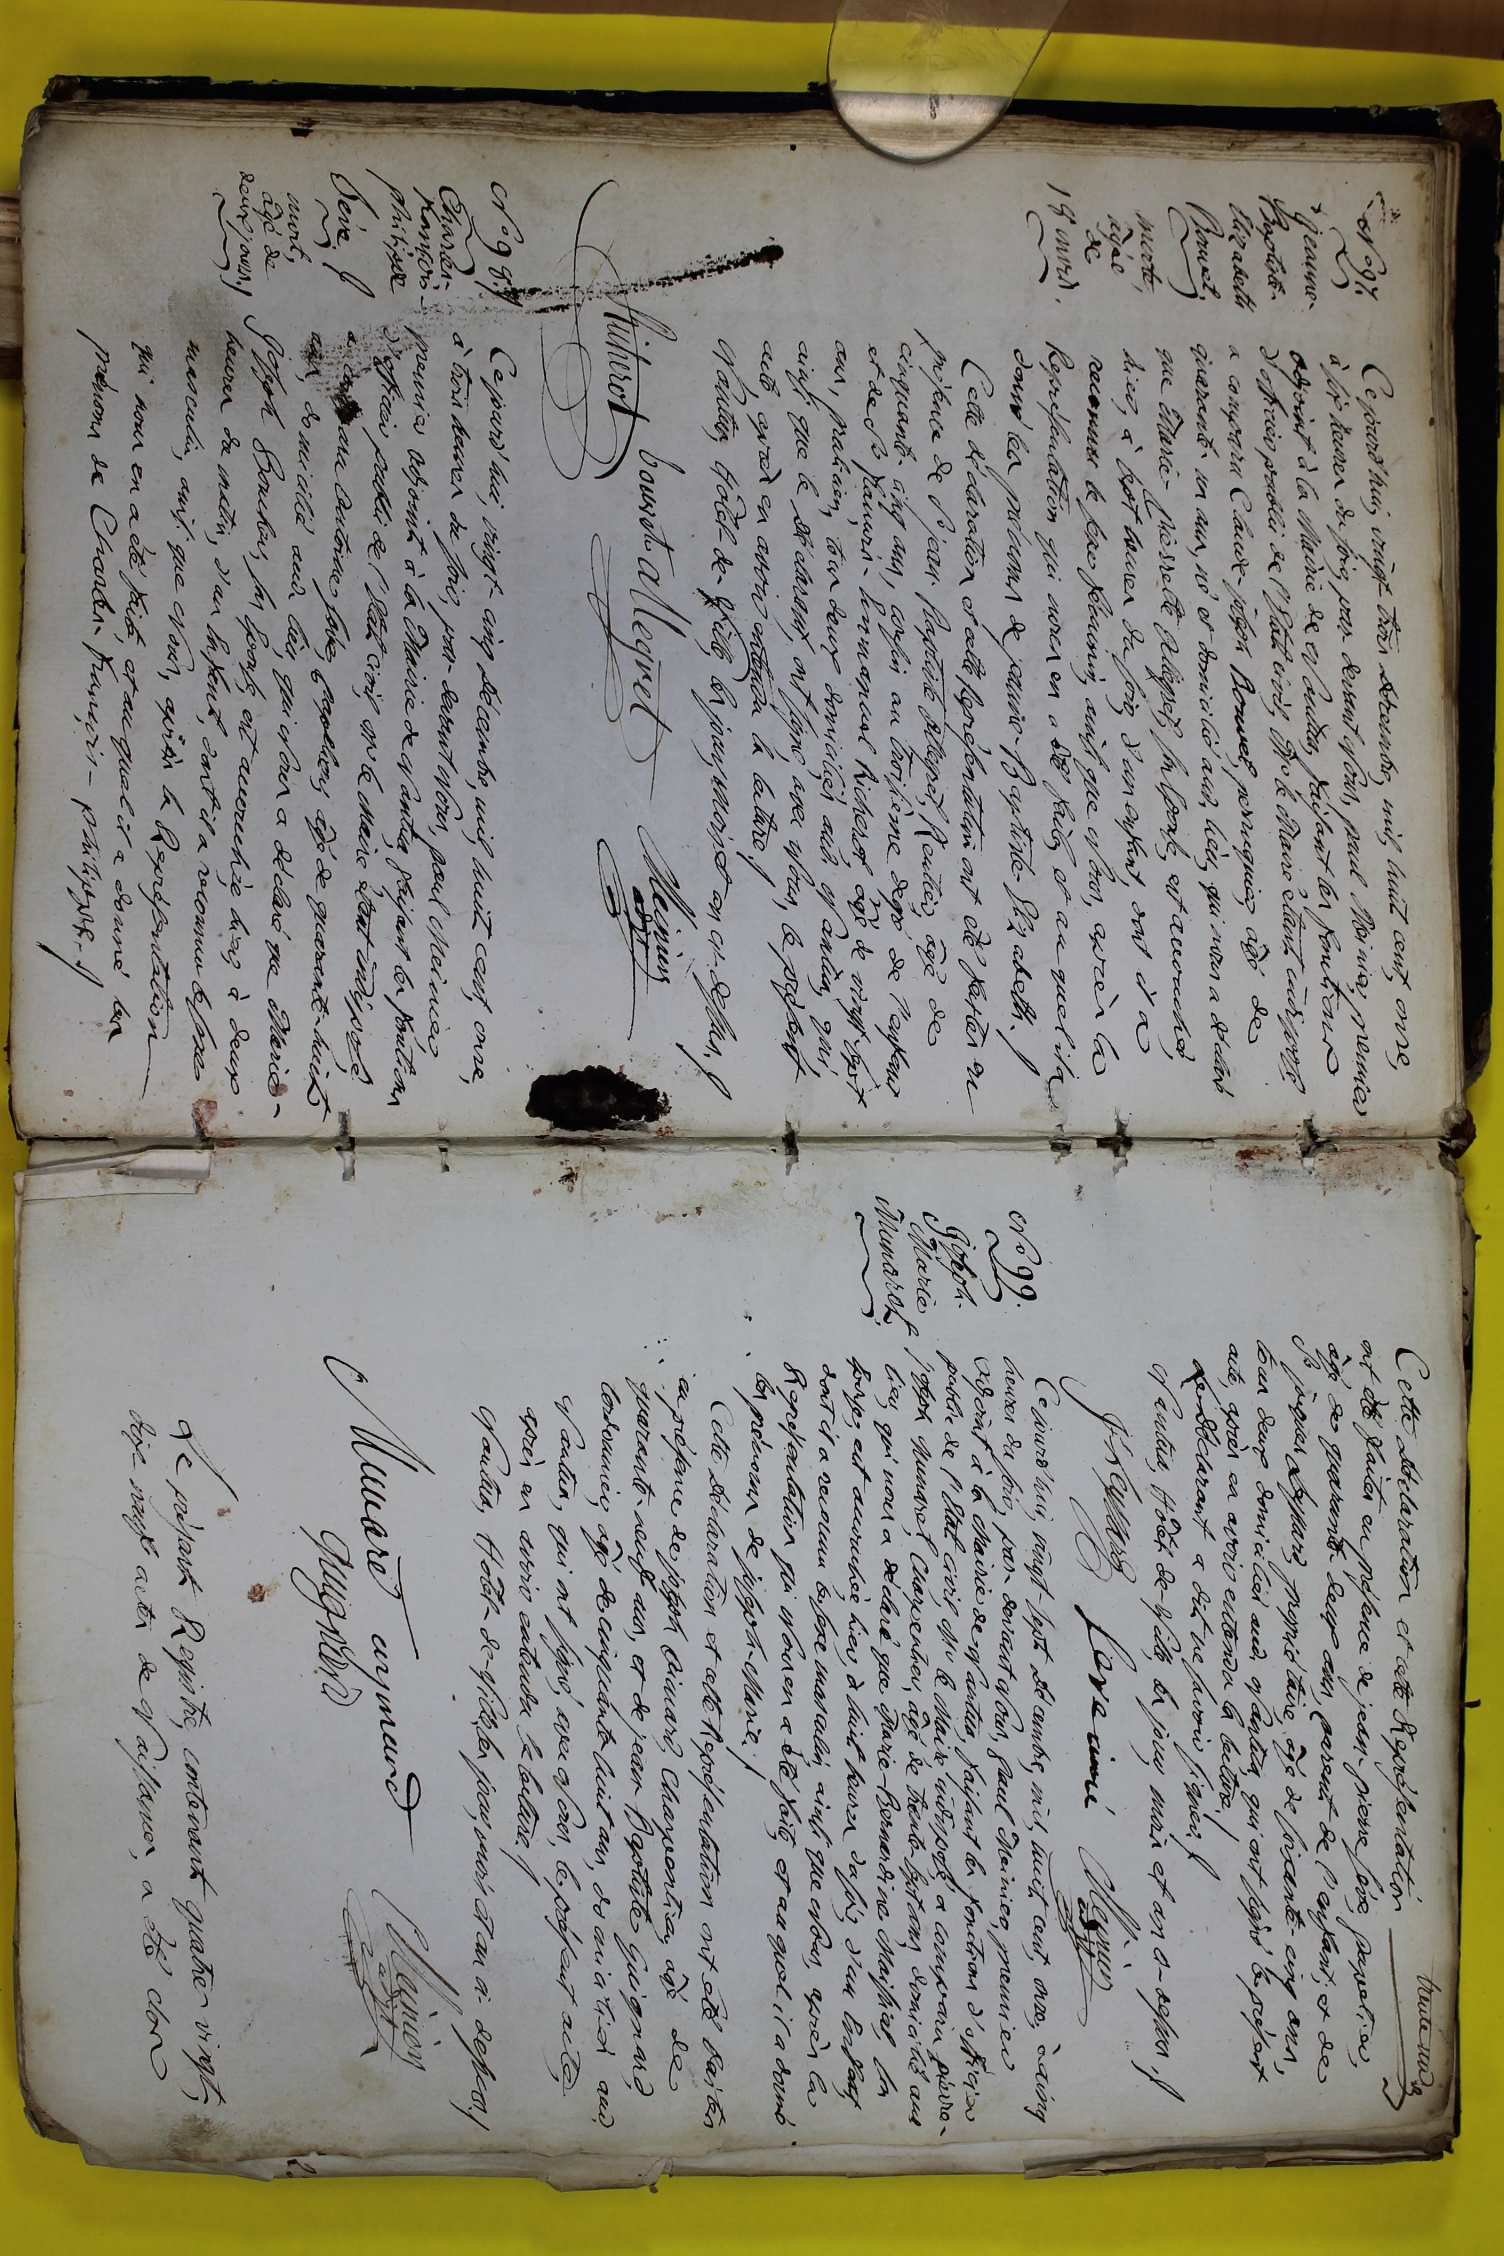 N.o 97.
Jeanne-
Baptiste-
Elizabeth
Bonvet.
morte,
âgée
de
18 mois.
Ce jourd'hui, vingt trois décembre, mil huit cent onze,
à six heures du soir, par devant Nous, paul Meinier, premier
adjoint à la Mairie de Nantua, faisant les fonctions
d'officier public de l'État civil, Mr. le Maire étant indisposé
a comparu Claude-joseph Bonvet, perruquier, âgé de
quarante un ans, né et domicilié aud. lieu, qui nous a déclaré
que Marie-pierrette Allegret, son épouse, est accouchée,
hier, à sept heures du soir, d'un enfant, dont il a
reconnu le sexe féminin, ainsi que Nous, après la
Représentation qui nous en a été faite, et auquel il a
donné les prénoms de jeanne-Baptiste-Elizabeth.
Cette déclaration et cette Représentation ont été faites en
présence de Sr. jean Baptiste Allegret, Rentier, âgé de
cinquante-cinq ans, cousin au troisième degré de l'enfant
et de Sr. fleuri-Emmanuel Richerot, âgé de vingt sept
ans, praticien, tous deux domiciliés aud. Nantua, qui,
ainsi que le déclarant, ont signé, avec Nous, le présent
acte, après en avoir entendu la lecture.
Nantua, Hôtel-de-Ville, les jour, mois et an ci-dessus.
Richerot bonvet allegret Meinier
adjt
N.o 98.
Charles-
François-
philippe
Sève.
mort,
âgé de
deux jours.
Ce jourd'hui, vingt-cinq décembre, mil huit cent onze,
à trois heures du soir, par-devant Nous, paul Meinier,
premier adjoint à la Mairie de Nantua, faisant les fonctions
d'officier public de l'État civil, Mr. le Maire étant indisposé
a comparu Antoine Sève, papetier, âgé de quarante-huit
ans, domicilié aud. lieu, qui nous a déclaré que Marie-
Joseph Bouchon, son épouse, est accouchée, hier, à deux
heures du matin, d'un Enfant, dont il a reconnu le sexe
masculin, ainsi que Nous, après la Représentation
qui nous en a été faite, et auquel il a donné les
prénoms de Charles-François-philippe.
trente-un
Cette déclaration et cette Représentation
ont été faites en présence de jean-pierre Sève, papetier,
âgé de quarante deux ans, parent de l'enfant, et de
Sr. jacques Reynaud, propriétaire, âgé de soixante cinq ans,
tous deux domiciliés aud. Nantua, qui ont signé le présent
acte, après en avoir entendu la lecture.
Le Déclarant a dit ne savoir signer.
Nantua, Hôtel-de-Ville, les jour, mois et an ci-dessus.
Meinier
adjt
N.o 99.
Joseph-
Marie
Munaret.
Ce jourd'hui, vingt-sept décembre, mil huit cent onze, à cinq
heures du soir, par-devant Nous, Paul Meinier, premier
adjoint à la Mairie de Nantua, faisant les fonctions d'officier
public de l'État civil, Mr. le Maire indisposé, a comparu pierre-
joseph Munaret, Charpentier, âgé de trente sept ans, domicilié aud.
lieu, qui nous a déclaré que Marie-Bernardine Maissiat, son
épouse, est accouchée, hier, à huit heures du soir, d'un Enfant,
dont il a reconnu le sexe masculin, ainsi que Nous, après la
Représentation qui nous en a été faite, et auquel il a donné
les prénoms de joseph-Marie.
Cette déclaration et cette Représentation ont été faites
en présence de joseph Aimard, Charpentier, âgé de
quarante-neuf ans, et de jean Baptiste Guignard,
Cordonnier, âgé de cinquante huit ans, domiciliés aud.
Nantua, qui ont signé, avec Nous, le présent acte,
après en avoir entendu la lecture.
Nantua, Hôtel-de-Ville, les jour, mois et an ci-dessus.
Munaret aymard
Guignard Meinier
adjt
Le présent Registre, contenant quatre-vingt-
dix-neuf actes de Naissance, a été clos